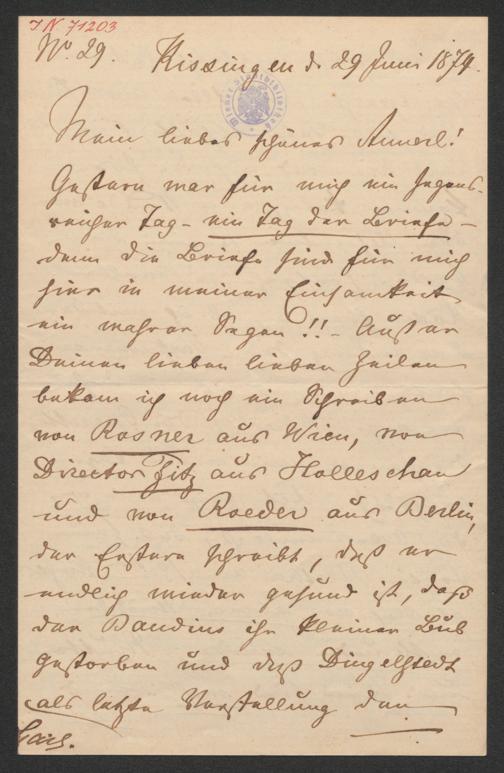 IN 71203
No. 29.
Kissingen d. 29 Juni 1879.
Mein liebes schönes Annerl!
Gestern war für mich ein segens-
reicher Tag – ein Tag der Briefe –
denn die Briefe sind für mich
hier in meiner Einsamkeit
ein wahrer Segen!! – Außer
Deinen lieben lieben Zeilen
bekam ich noch ein Schreiben
von Rosner aus Wien, von
Director Fitz aus Holleschau
und von Roeder aus Berlin,
der Erstere schreibt, daß er
endlich wieder gesund ist, daß
der Baudius ihr kleiner Bub
gestorben und daß Dingelstedt
als letzte Vorstellung den